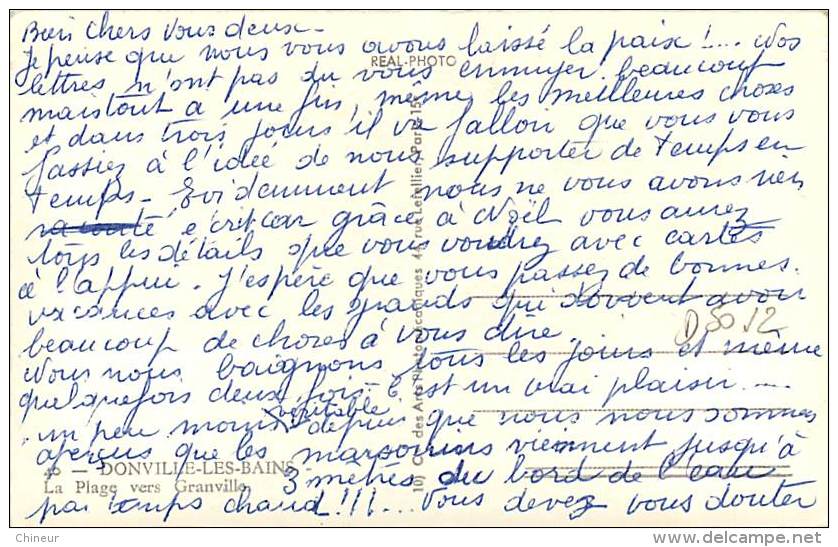 Bien Chers Vous deux -
Je pense que nous vous avons laissé la paix !... Nos
REAL-PHOTO
lettres n'ont pas du vous ennuyer beaucoup
mais tout a une fin, même les meilleures choses
et dans trois jours il va falloir que vous vous
fassiez à l'idée de nous supporter de temps en
temps - Evidemment nous ne vous avons rien
raconté écrit car grâce à Noël vous aurez
tous les détails que vous voudrez avec cartes
à l'appui. J'espère que vous passez de bonnes
vacances avec les grands qui doivent avoir
beaucoup de choses à vous dire.
D 50 12
Nous nous baignons tous les jours et même
quelquefois deux fois. C'est un vrai plaisir....
un peu moins véritable depuis que nous nous sommes
aperçus que les marsouins viennent jusqu'à
46 — DONVILLE-LES-BAINS -
3 mètres du bord de l'eau
La Plage vers Granville
par temps chaud !!!... Vous devez vous douter
des Arts Photomécaniques 44, rue Letellier, Paris-15e
Chineur
www.delcampe.net